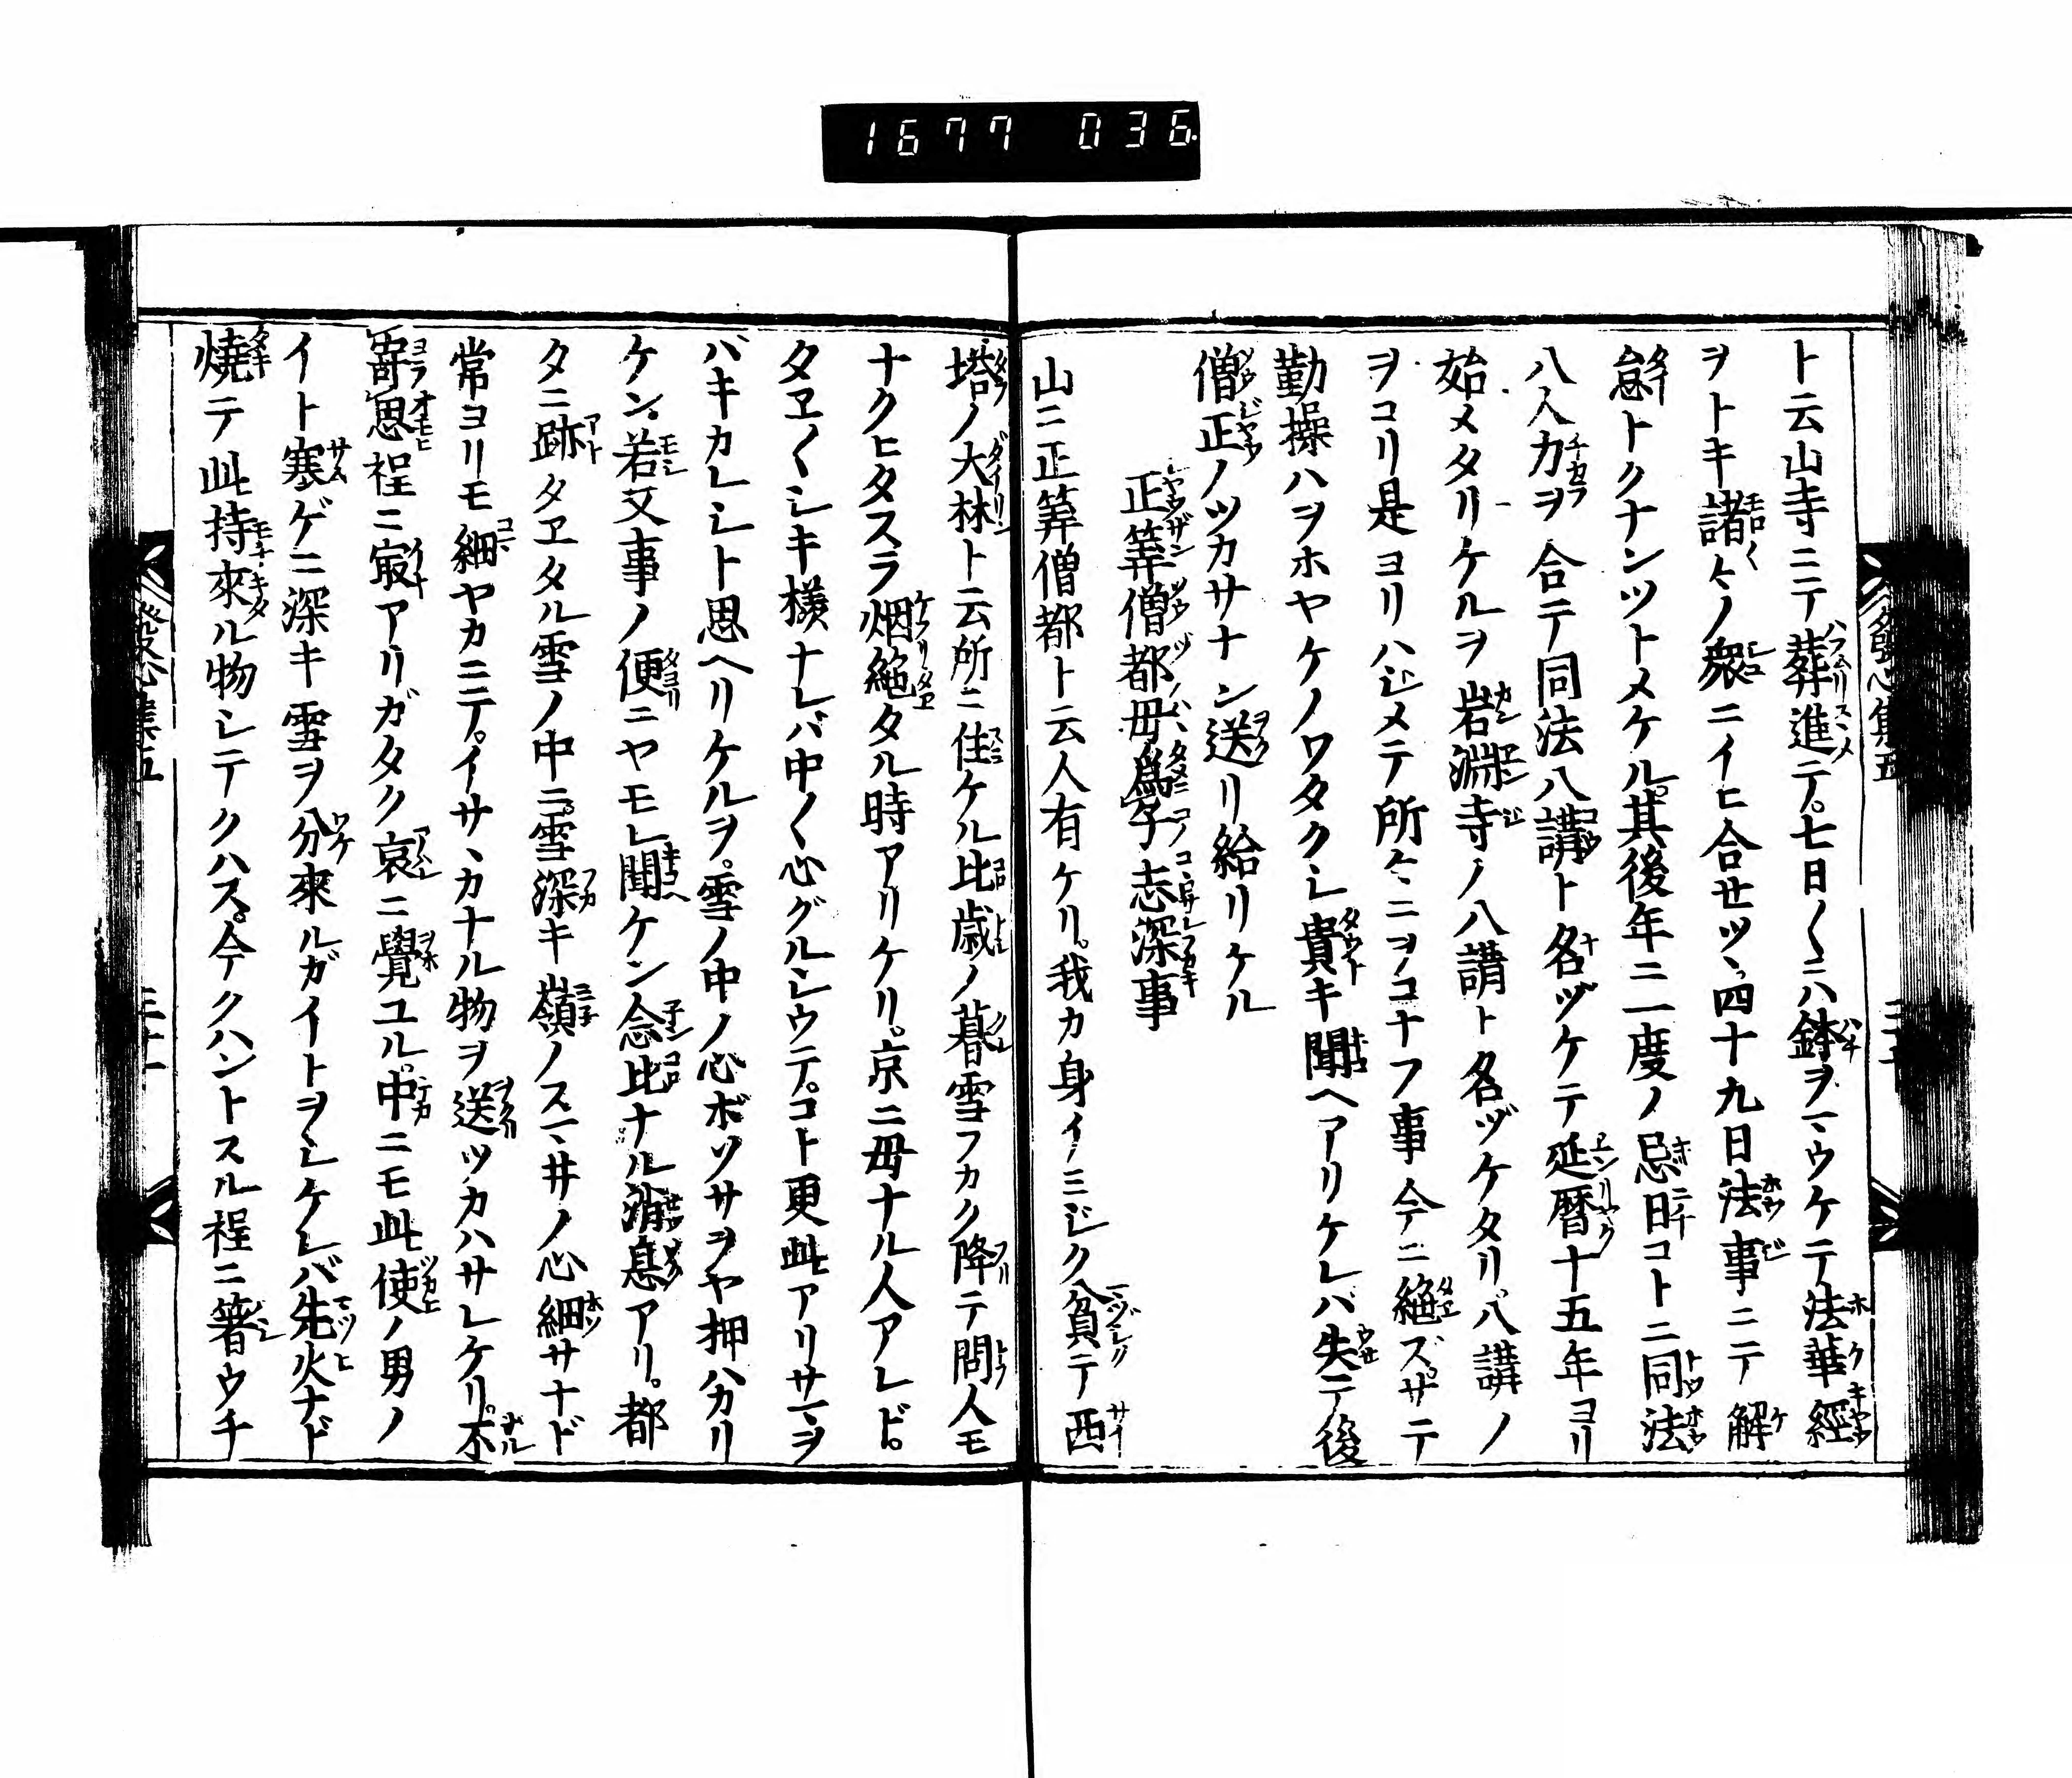 1677 036
ト云山寺ニテ葬進テ。七日〳〵ニハ鉢ヲマウケテ法華經
ヲトキ諸々ノ衆ニイヒ合セツヽ四十九日法事ニテ解
怠トクナンツトメケル。其後年ニ一度ノ忌日コトニ同法
八人力ヲ合テ同法八講ト名ヅケテ延暦十五年ヨリ
始メタリケルヲ岩淵寺ノ八講ト名ヅケタリ。八講ノ
ヲコリ是ヨリハジメテ所々ニヲコナフ事今ニ絶ズ。サテ
勤操ハヲホヤケノワタクシ貴キ聞ヘアリケレバ失テ後
僧正ノツカサナン送リ給リケル
正筭僧都母爲子志深事
山ニ正筭僧都ト云人有ケリ。我カ身イミジク貧テ西
塔ノ大林ト云所ニ住ケル比歳ノ暮雪フカク降テ問人モ
ナクヒタスラ烟絶タル時アリケリ。京ニ母ナル人アレド。
タヱ〳〵シキ様ナレバ中〳〵心グルシウテ。コト更此アリサマヲ
バキカレシト思ヘリケルヲ。雪ノ中ノ心ボソサヲヤ押ハカリ
ケン。若又事ノ便ニヤモレ聞ケン念比ナル消息アリ。都
タニ跡タヱタル雪ノ中ニ。雪深キ嶺ノスマ井ノ心細サナド
常ヨリモ細ヤカニテ。イサヽカナル物ヲ送ツカハサレケリ。不
寄思程ニ寂アリガタク哀ニ覺ユル。中ニモ此使ノ男ノ
イト寒ゲニ深キ雪ヲ分來ルガイトヲシケレバ先火ナド
燒テ此持來ル物シテクハス。今クハントスル程ニ箸ウチ
發心集五